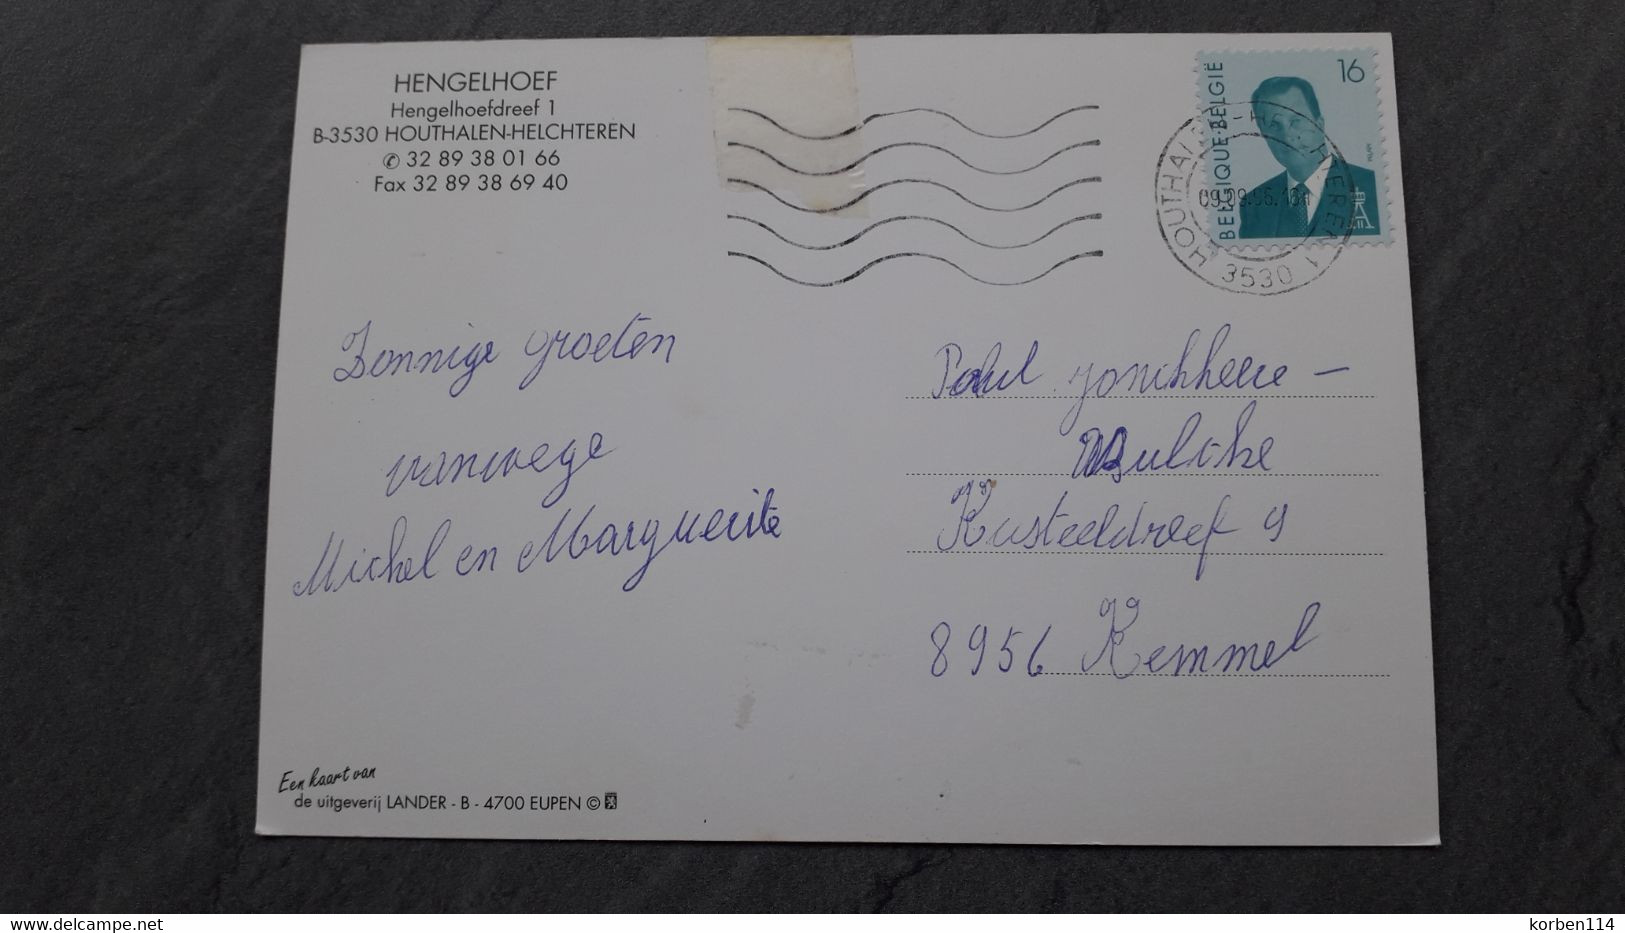 HENGELHOEF
Hengelhoefdreef 1
B-3530 HOUTHALEN-HELCHTEREN
✆ 32 89 38 01 66
Fax 32 89 38 69 40
BELGIQUE·BELGIË
16
HOUTHALEN-HELCHTEREN 1
3530
Zonnige groeten
vanwege
Michel en Marguerite
Paul Jonckheere –
Bultike
Kasteeldreef 9
8956 Kemmel
Een kaart van
de uitgeverij LANDER - B - 4700 EUPEN ©
www.delcampe.net
korben114